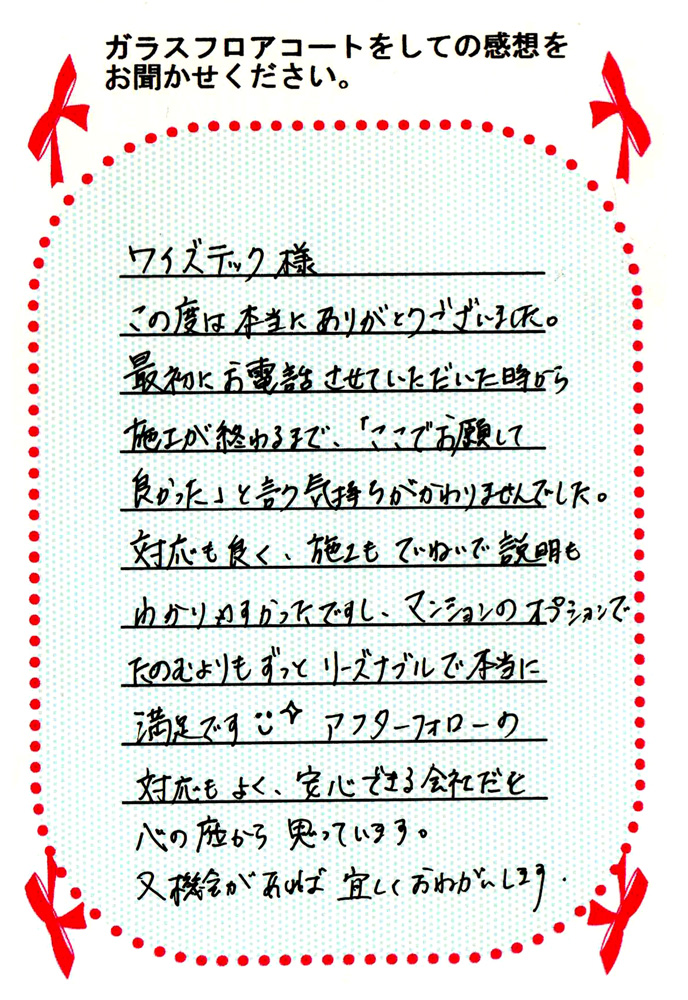 ガラスフロアコートをしての感想を
お聞かせください。
ワイズテック様
この度は本当にありがとうございました。
最初にお電話させていただいた時から
施工が終わるまで、「ここでお願して
良かった」と言う気持ちがかわりませんでした。
対応も良く、施工もていねいで説明も
わかりやすかったですし、マンションのオプションで
たのむよりもずっとリーズナブルで本当に
満足です アフターフォローの
対応もよく、安心できる会社だと
心の底から思っています。
又機会があれば宜しくおねがいします.